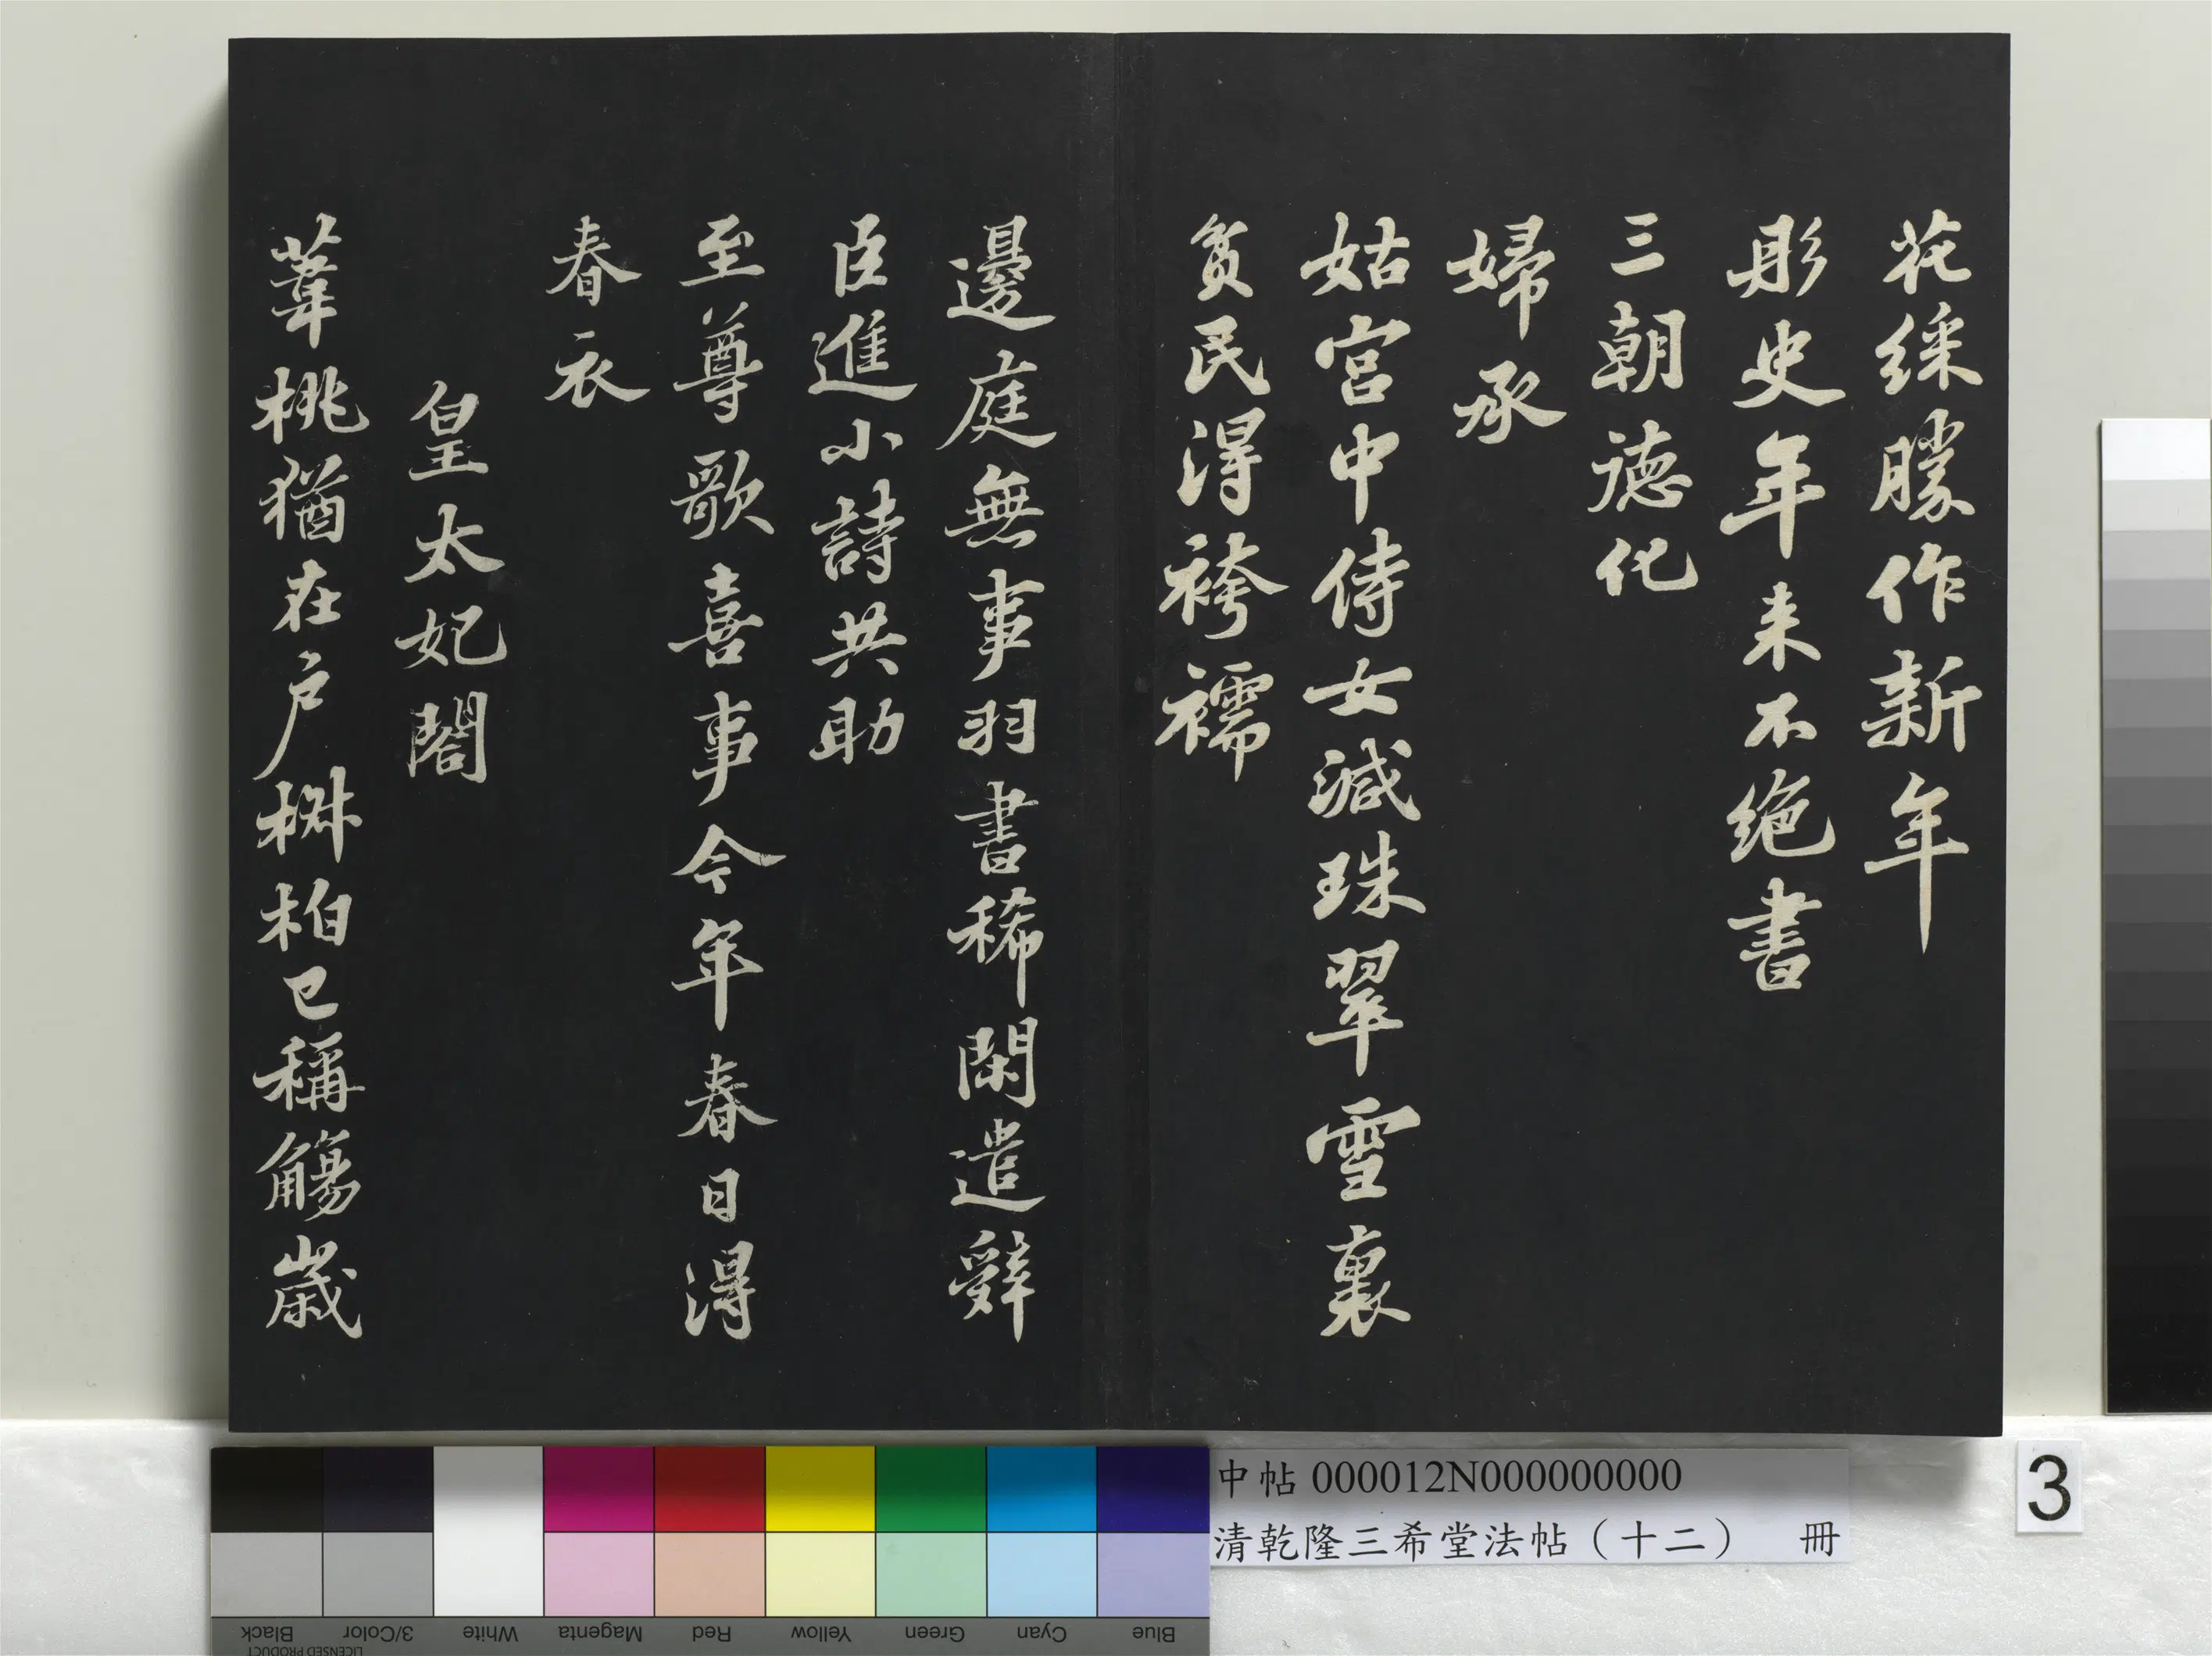 花綵勝作新年
彤史年来不絕書
三朝德化
婦承
姑宮中侍女減珠翠雪裏
貧民得袴襦
邊庭無事羽書稀閑遣辤
臣進小詩共助
至尊歌喜事今年春日得
春衣
皇太妃閣
葦桃猶在戶椒柏已稱觴歲
中帖 000012N000000000
清乾隆三希堂法帖（十二） 冊
3
Black
3/Color
White
Magenta
Red
Yellow
Green
Cyan
Blue
LICENSED PRODUCT